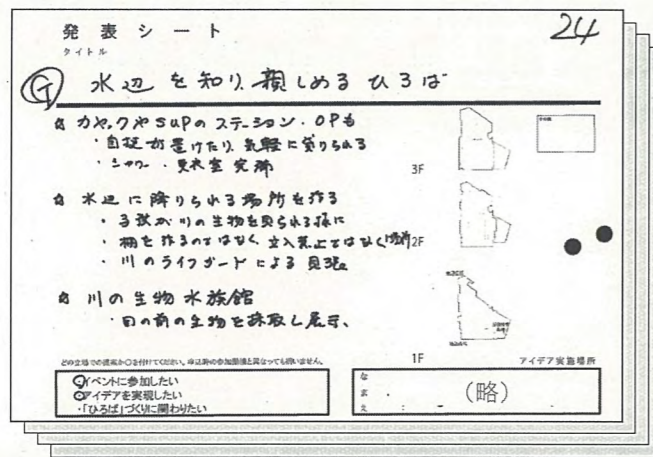 発表シート
24
タイトル
G 水辺を知り、親しめるひろば
☆ カヤックやSUPのステーション・OPも
・自艇が置けたり、気軽に借りられる
・シャワー・更衣室完備
3F
その他
☆ 水辺に降りられる場所を作る
・子供が川の生物を見られる様に
・柵を作るのではなく、立入禁止ではなく
2F
・川のライフガードによる見張
☆ 川の生物水族館
・目の前の生物を採取し展示、
1F
アイデア実施場所
どの立場での提案か○を付けてください。申込時の参加動機と異なっても構いません。
・イベントに参加したい
・アイデアを実現したい
・「ひろば」づくりに関わりたい
なまえ
(略)